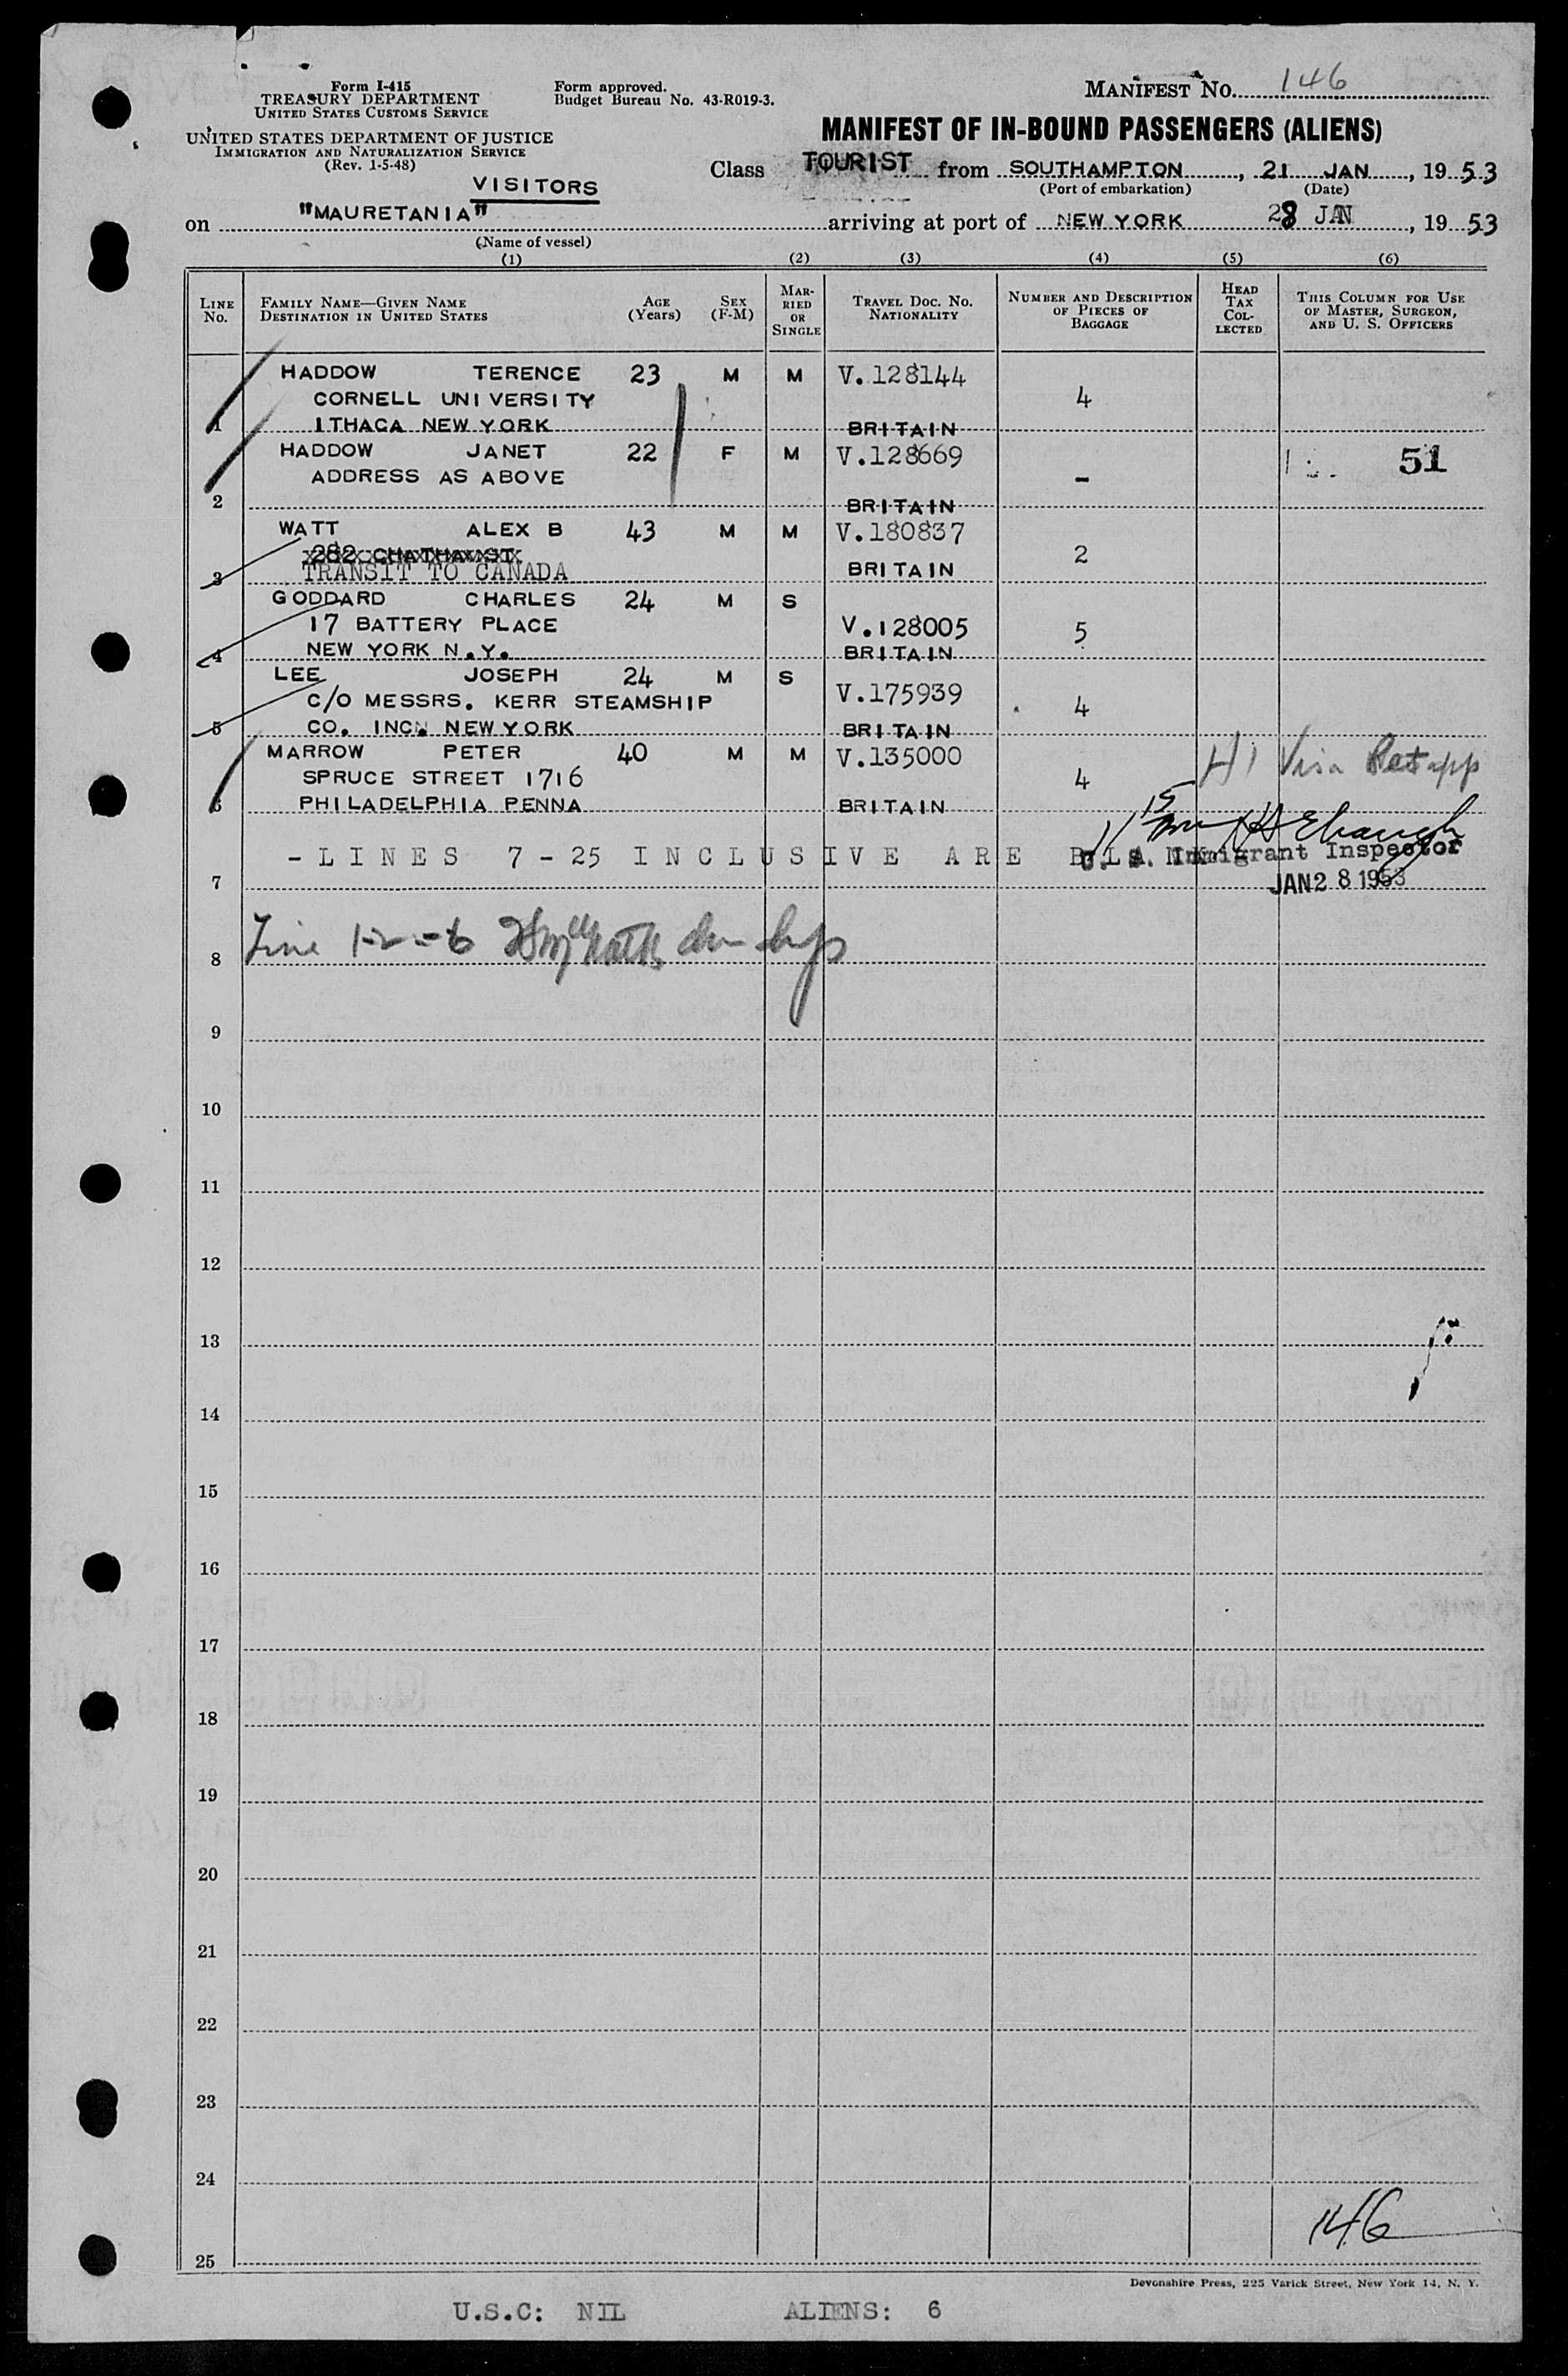 Form I-415
TREASURY DEPARTMENT
UNITED STATES CUSTOMS SERVICE
UNITED STATES DEPARTMENT OF JUSTICE
IMMIGRATION AND NATURALIZATION SERVICE
(Rev. 1-5-48)
Form approved.
Budget Bureau No. 43-R019-3.
MANIFEST NO. 146
MANIFEST OF IN-BOUND PASSENGERS (ALIENS)
Class TOURIST from SOUTHAMPTON, 21 JAN, 1953
(Port of embarkation) (Date)
VISITORS
on "MAURETANIA" arriving at port of NEW YORK 28 JAN, 1953
(Name of vessel)
(1) (2) (3) (4) (5) (6)
LINE NO.
FAMILY NAME—GIVEN NAME
DESTINATION IN UNITED STATES
AGE (Years)
SEX (F-M)
MARRIED OR SINGLE
TRAVEL DOC. NO.
NATIONALITY
NUMBER AND DESCRIPTION OF PIECES OF BAGGAGE
HEAD TAX COLLECTED
THIS COLUMN FOR USE OF MASTER, SURGEON, AND U. S. OFFICERS
HADDOW TERENCE 23 M M V.128144
CORNELL UNIVERSITY 4
1 ITHACA NEW YORK BRITAIN
HADDOW JANET 22 F M V.128669 51
ADDRESS AS ABOVE -
2 BRITAIN
WATT ALEX B 43 M M V.180837
282 CHATHAM ST. 2
3 TRANSIT TO CANADA BRITAIN
GODDARD CHARLES 24 M S
17 BATTERY PLACE V.128005 5
4 NEW YORK N.Y. BRITAIN
LEE JOSEPH 24 M S
C/O MESSRS. KERR STEAMSHIP V.175939 4
5 CO. INC. NEW YORK BRITAIN
MARROW PETER 40 M M V.135000 H1 Visa Pet app
SPRUCE STREET 1716 4
6 PHILADELPHIA PENNA BRITAIN
- LINES 7 - 25 INCLUSIVE ARE BLANK
U. S. Immigrant Inspector
7 JAN 28 1953
8 Line 1-2-6
9
10
11
12
13
14
15
16
17
18
19
20
21
22
23
24
146
25
Devonshire Press, 225 Varick Street, New York 14, N. Y.
U.S.C: NIL ALIENS: 6